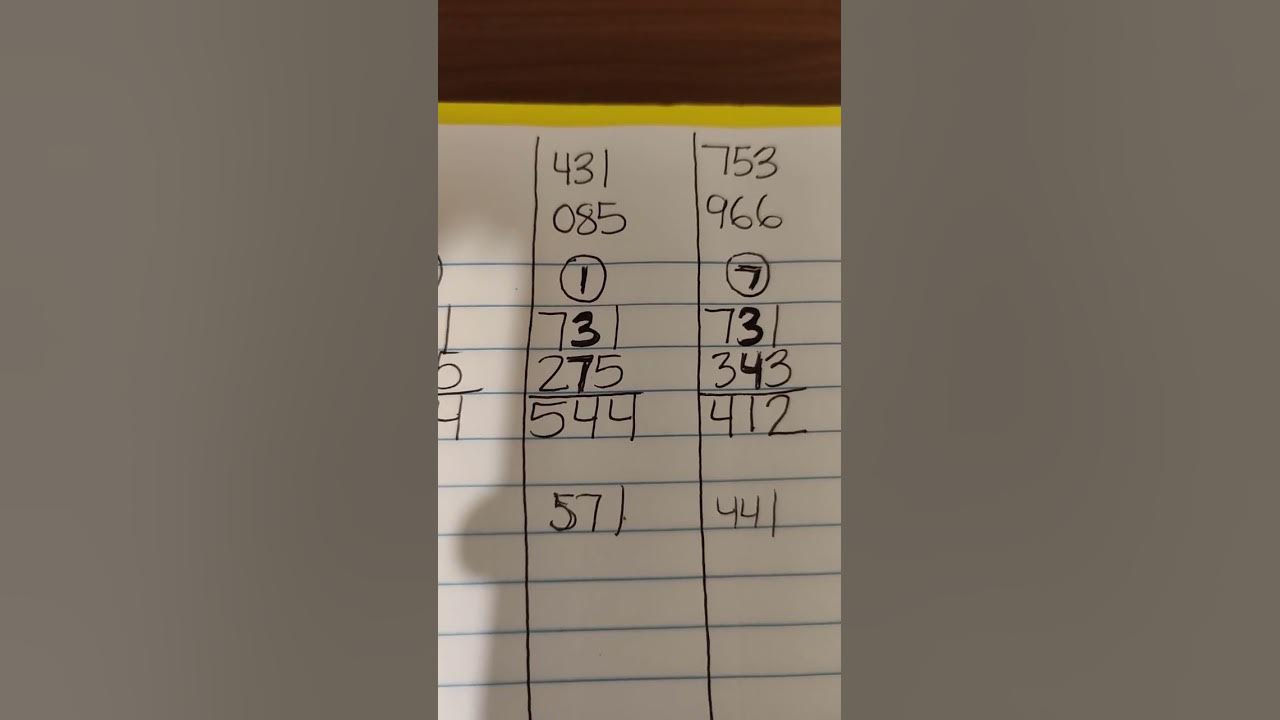 431
085
1
731
275
544
571
753
966
7
731
343
412
441
5
4